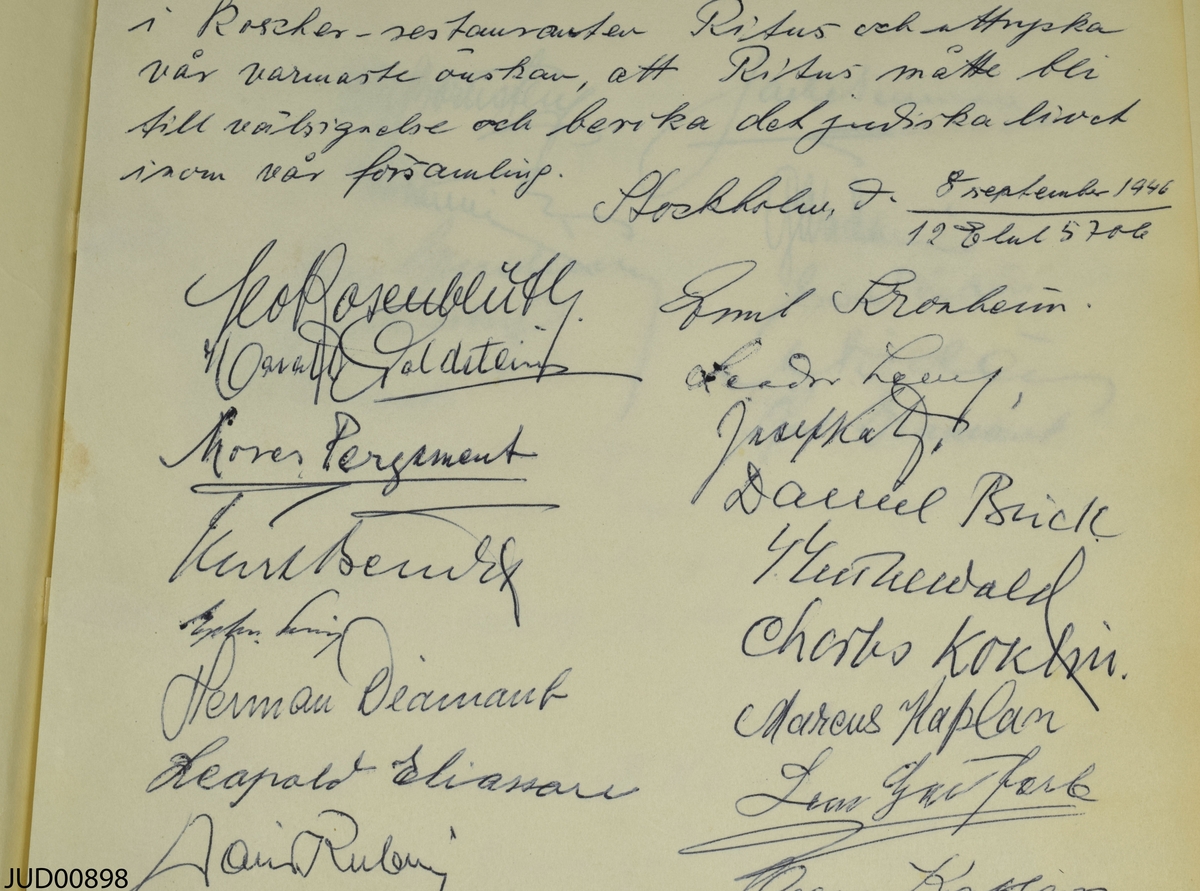 i Koscher-restauranten Ritus och uttrycka
vår varmaste önskan, att Ritus måtte bli
till välsignelse och berika det judiska livet
inom vår församling.
Stockholm, d. 8 september 1946
12 Elul 5706
Leo Rosenblüth
Goldstein
Emil Kronheim.
Moses Pergament
Josef Katz
Kurt
Daniel Brick
Charles Koklin.
Herman Diamant
Marcus Kaplan
Leopold Eliasson
Rubin
Kaplan
JUD00898